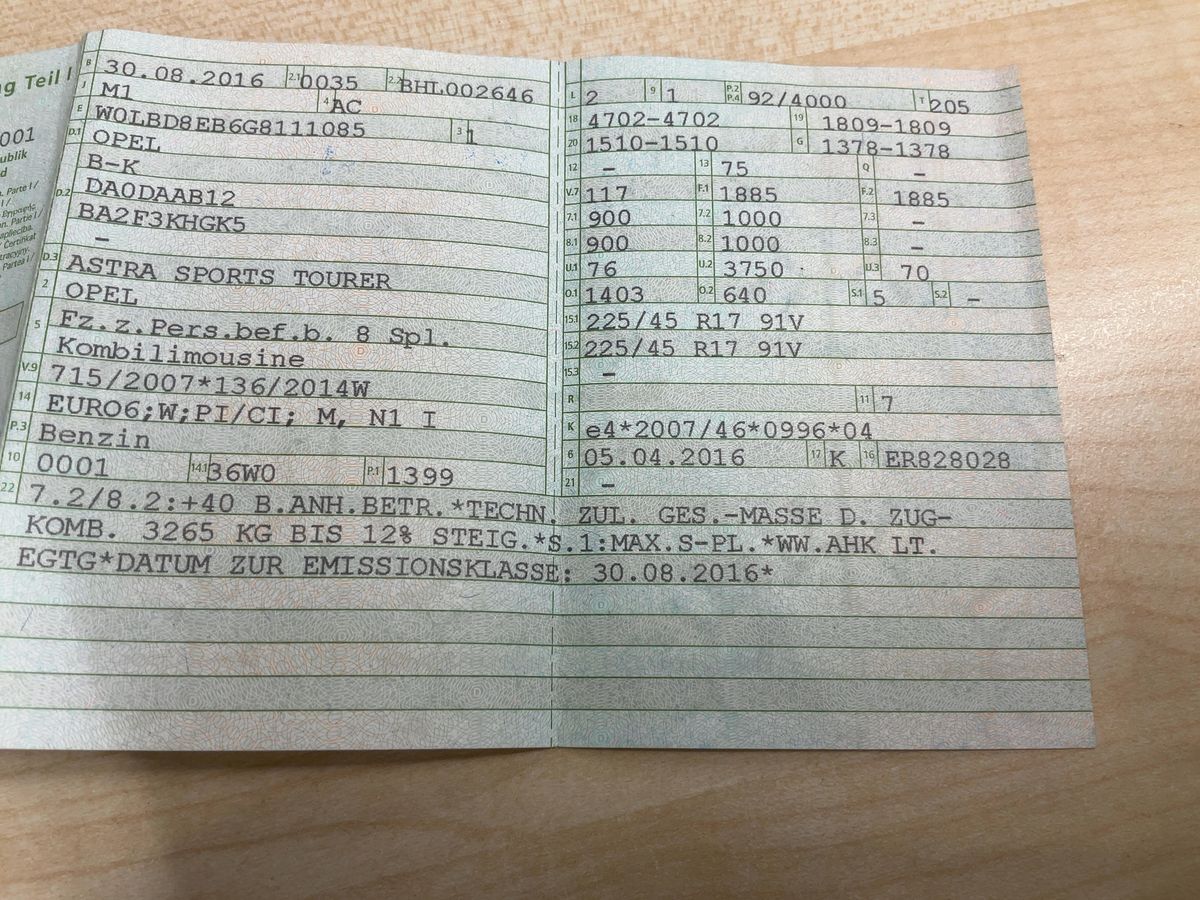 ng Teil I
001
ublik
d
n. Parte I /
I /
on. Parte I /
apliecība.
Partea I /
B 30.08.2016 2.1 0035 2.2 BHL002646
J M1 4 AC
E W0LBD8EB6G8111085 3 1
D.1 OPEL
B-K
D.2 DA0DAAB12
BA2F3KHGK5
–
D.3 ASTRA SPORTS TOURER
2 OPEL
5 Fz.z.Pers.bef.b. 8 Spl.
Kombilimousine
V.9 715/2007*136/2014W
14 EURO6;W;PI/CI; M, N1 I
P.3 Benzin
10 0001 14.1 36W0 P.1 1399
L 2 9 1 P.2 P.4 92/4000 T 205
18 4702-4702 19 1809-1809
20 1510-1510 G 1378-1378
12 – 13 75 Q –
V.7 117 F.1 1885 F.2 1885
7.1 900 7.2 1000 7.3 –
8.1 900 8.2 1000 8.3 –
U.1 76 U.2 3750 U.3 70
O.1 1403 O.2 640 S.1 5 S.2 –
15.1 225/45 R17 91V
15.2 225/45 R17 91V
15.3 –
R 11 7
K e4*2007/46*0996*04
6 05.04.2016 17 K 16 ER828028
21 –
22 7.2/8.2:+40 B.ANH.BETR.*TECHN. ZUL. GES.-MASSE D. ZUG-
KOMB. 3265 KG BIS 12% STEIG.*S.1:MAX.S-PL.*WW.AHK LT.
EGTG*DATUM ZUR EMISSIONSKLASSE: 30.08.2016*